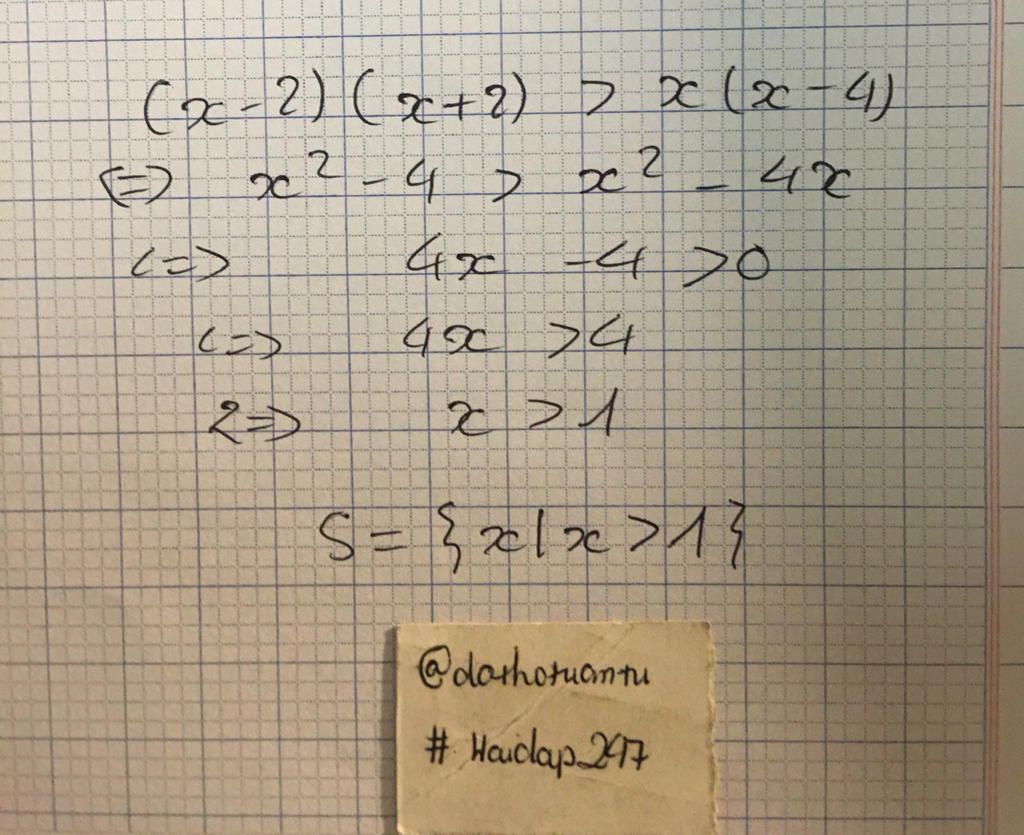 (x-2)(x+2) > x(x-4)
<=> x² - 4 > x² - 4x
<=> 4x - 4 > 0
<=> 4x > 4
<=> x > 1
S = {x | x > 1}
@dathotuantu
# Hoidap_247